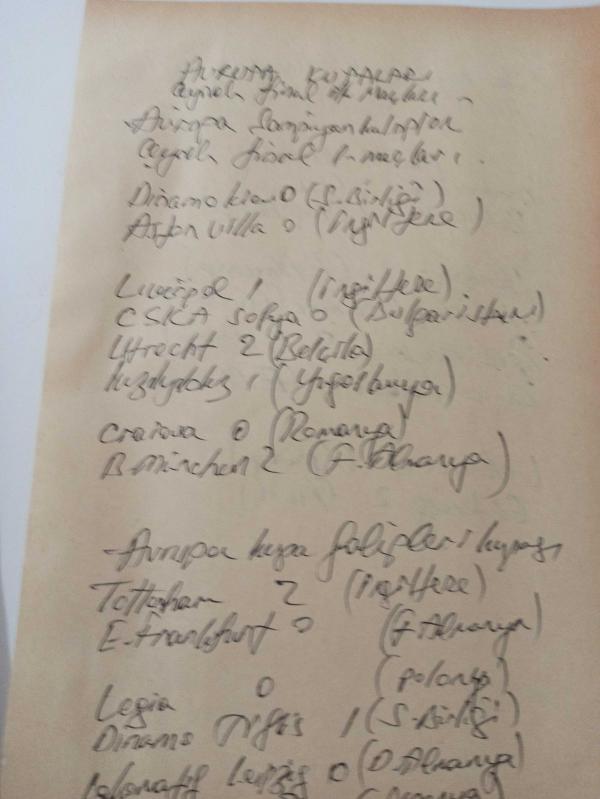 AVRUPA KUPALARI
çeyrek final ilk maçları
- Avrupa Şampiyon kulüpler
çeyrek final 1. maçları
Dinamo kiev 0 (S. Birliği)
Aston villa 0 (ingiltere)
Liverpol 1 (ingiltere)
CSKA Sofya 0 (Bulgaristan)
Utrecht 2 (Belçika)
kızılyıldız 1 (Yugoslavya)
Craiova 0 (Romanya)
B. München 2 (F. Almanya)
- Avrupa kupa galipleri kupası
Tottenham 2 (ingiltere)
E. Frankfurt 0 (F. Almanya)
Legia 0 (polonya)
Dinamo Tiflis 1 (S. Birliği)
Lokomotif Leipzig 0 (D. Almanya)